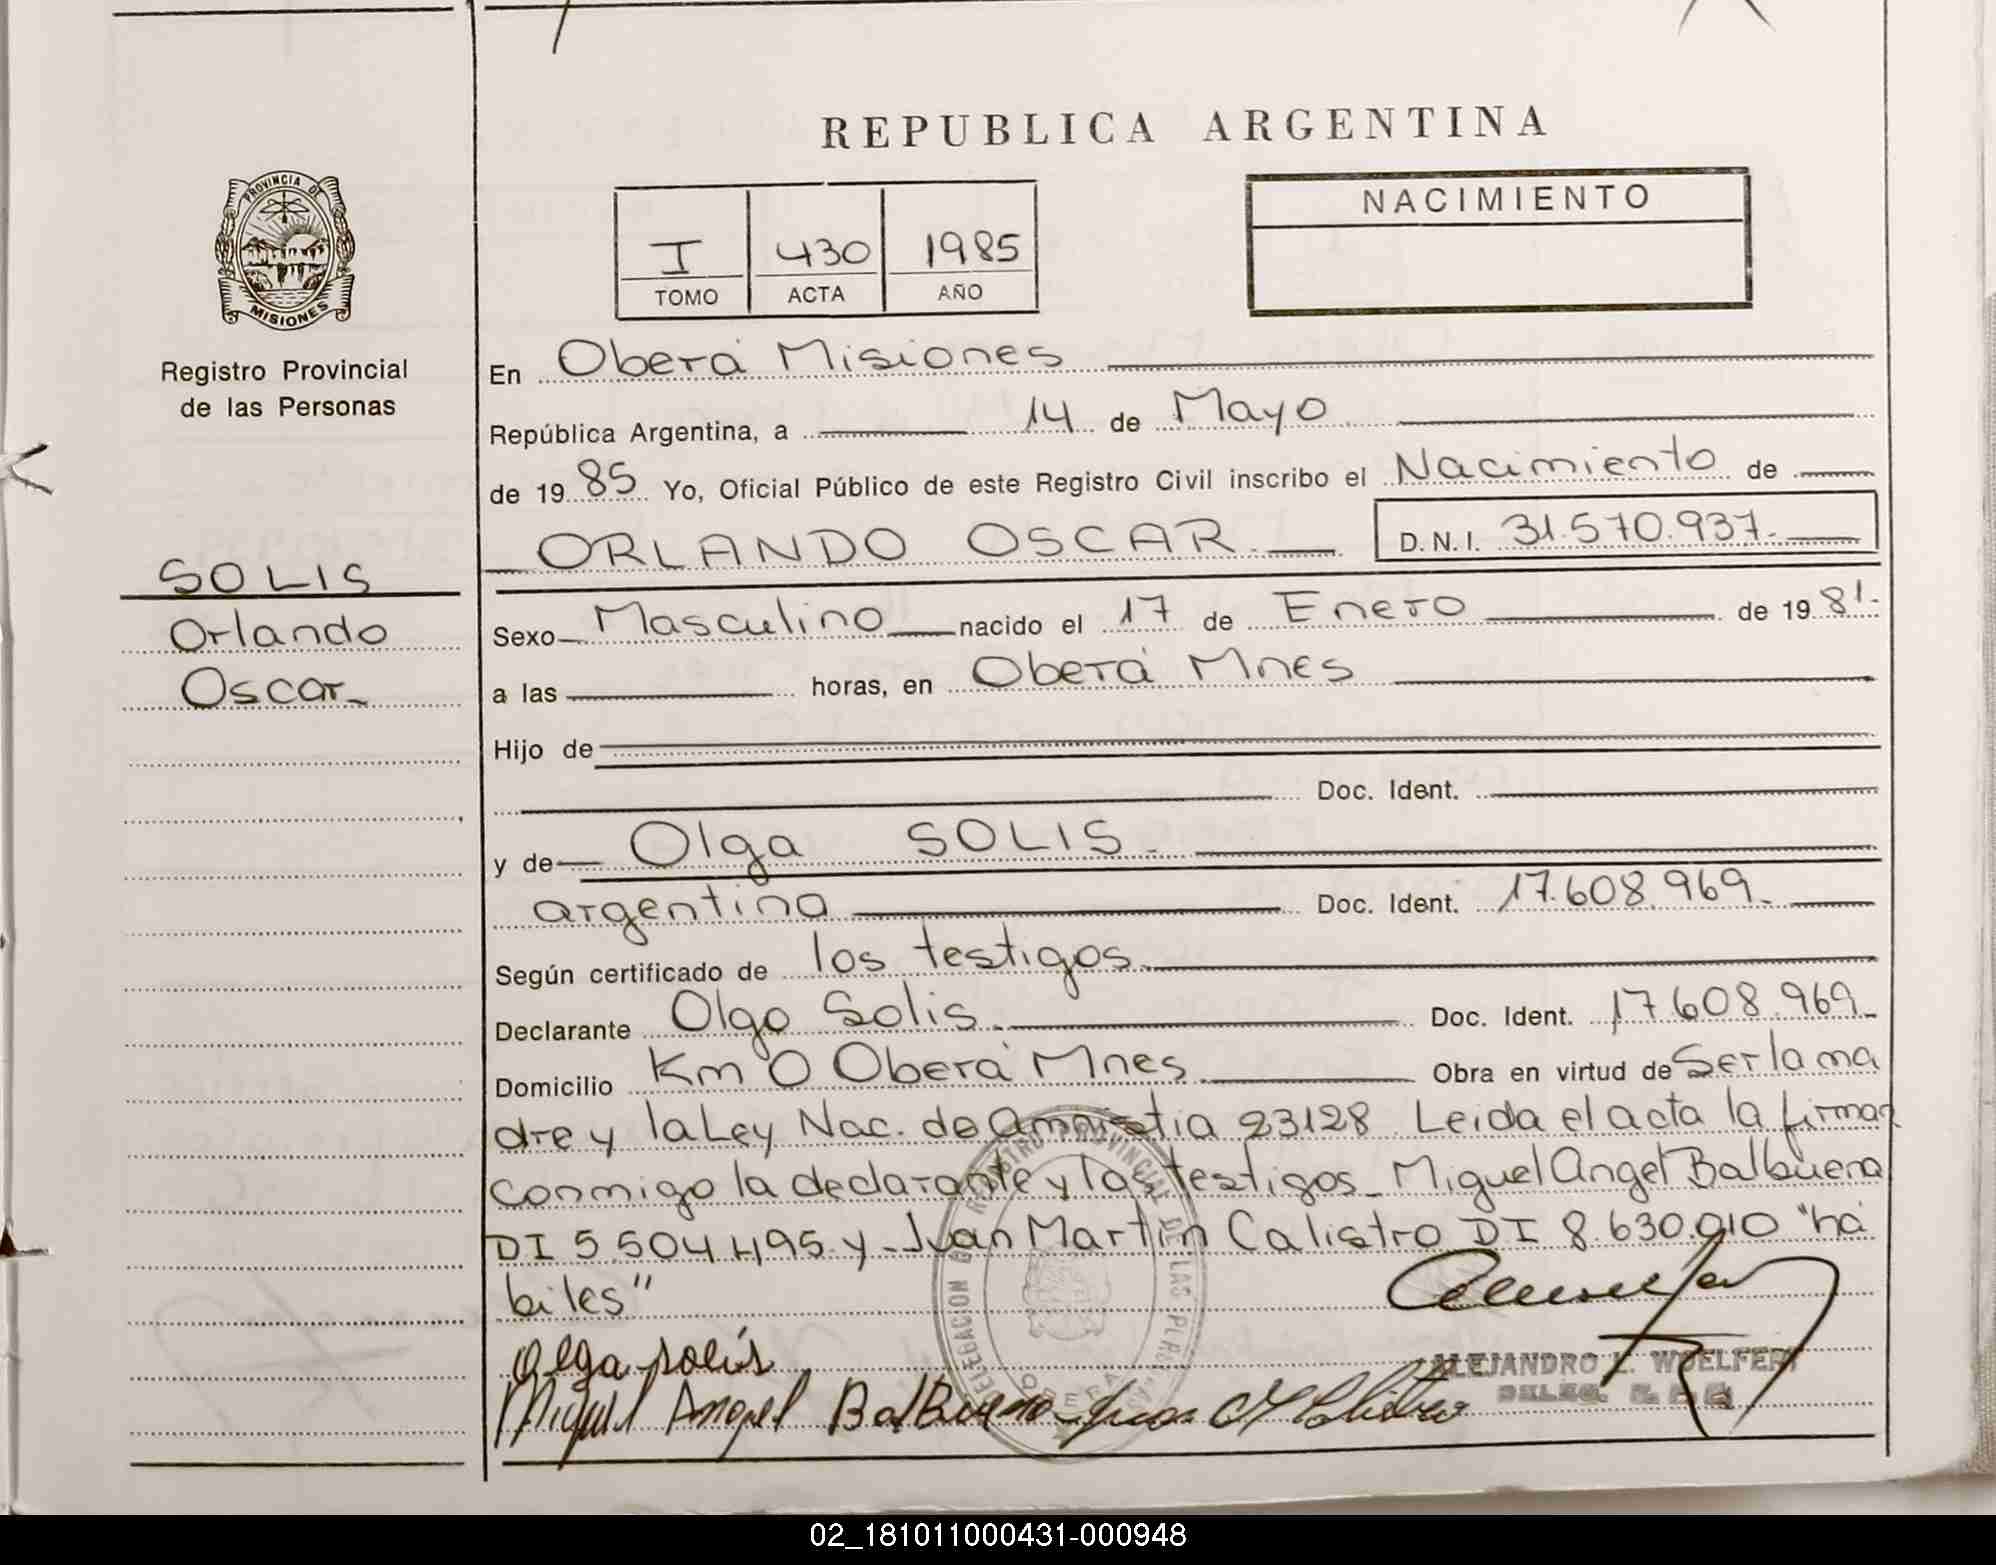 REPUBLICA ARGENTINA
PROVINCIA DE
MISIONES
Registro Provincial
de las Personas
I 430 1985
TOMO ACTA AÑO
NACIMIENTO
En Oberá Misiones
República Argentina, a 14 de Mayo
de 1985 Yo, Oficial Público de este Registro Civil inscribo el Nacimiento de
ORLANDO OSCAR. D.N.I. 31.570.937.
SOLIS
Orlando
Oscar
Sexo Masculino nacido el 17 de Enero de 1981.
a las horas, en Oberá Mnes
Hijo de
Doc. Ident.
y de Olga SOLIS.
argentina Doc. Ident. 17.608.969.
Según certificado de los testigos.
Declarante Olga Solis. Doc. Ident. 17.608.969.
Domicilio Km 0 Oberá Mnes. Obra en virtud de Ser la ma
dre y la Ley Nac. de Amnistia 23128. Leida el acta la firman
conmigo la declarante y los testigos. Miguel Angel Balbuena
DI 5.504.495. y Juan Martin Calistro DI 8.630.010 "há
biles"
Olga solís
Miguel Angel Balbuena
ALEJANDRO L. WOELFERT
DELEGACION REGISTRO PROVINCIAL DE LAS
02_181011000431-000948